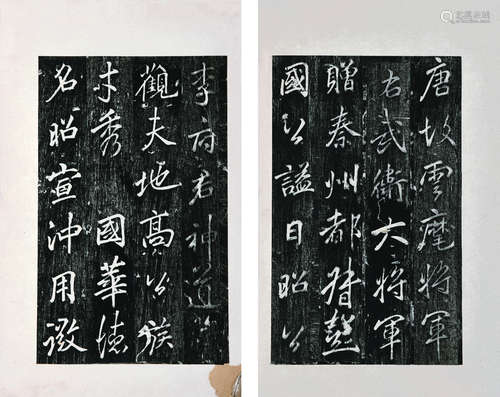 唐故雲麾將軍
右武衛大將軍
贈秦州都督彭
國公謚曰昭公
李府君神道
觀夫地高公族
才秀國華德
名昭宣沖用微